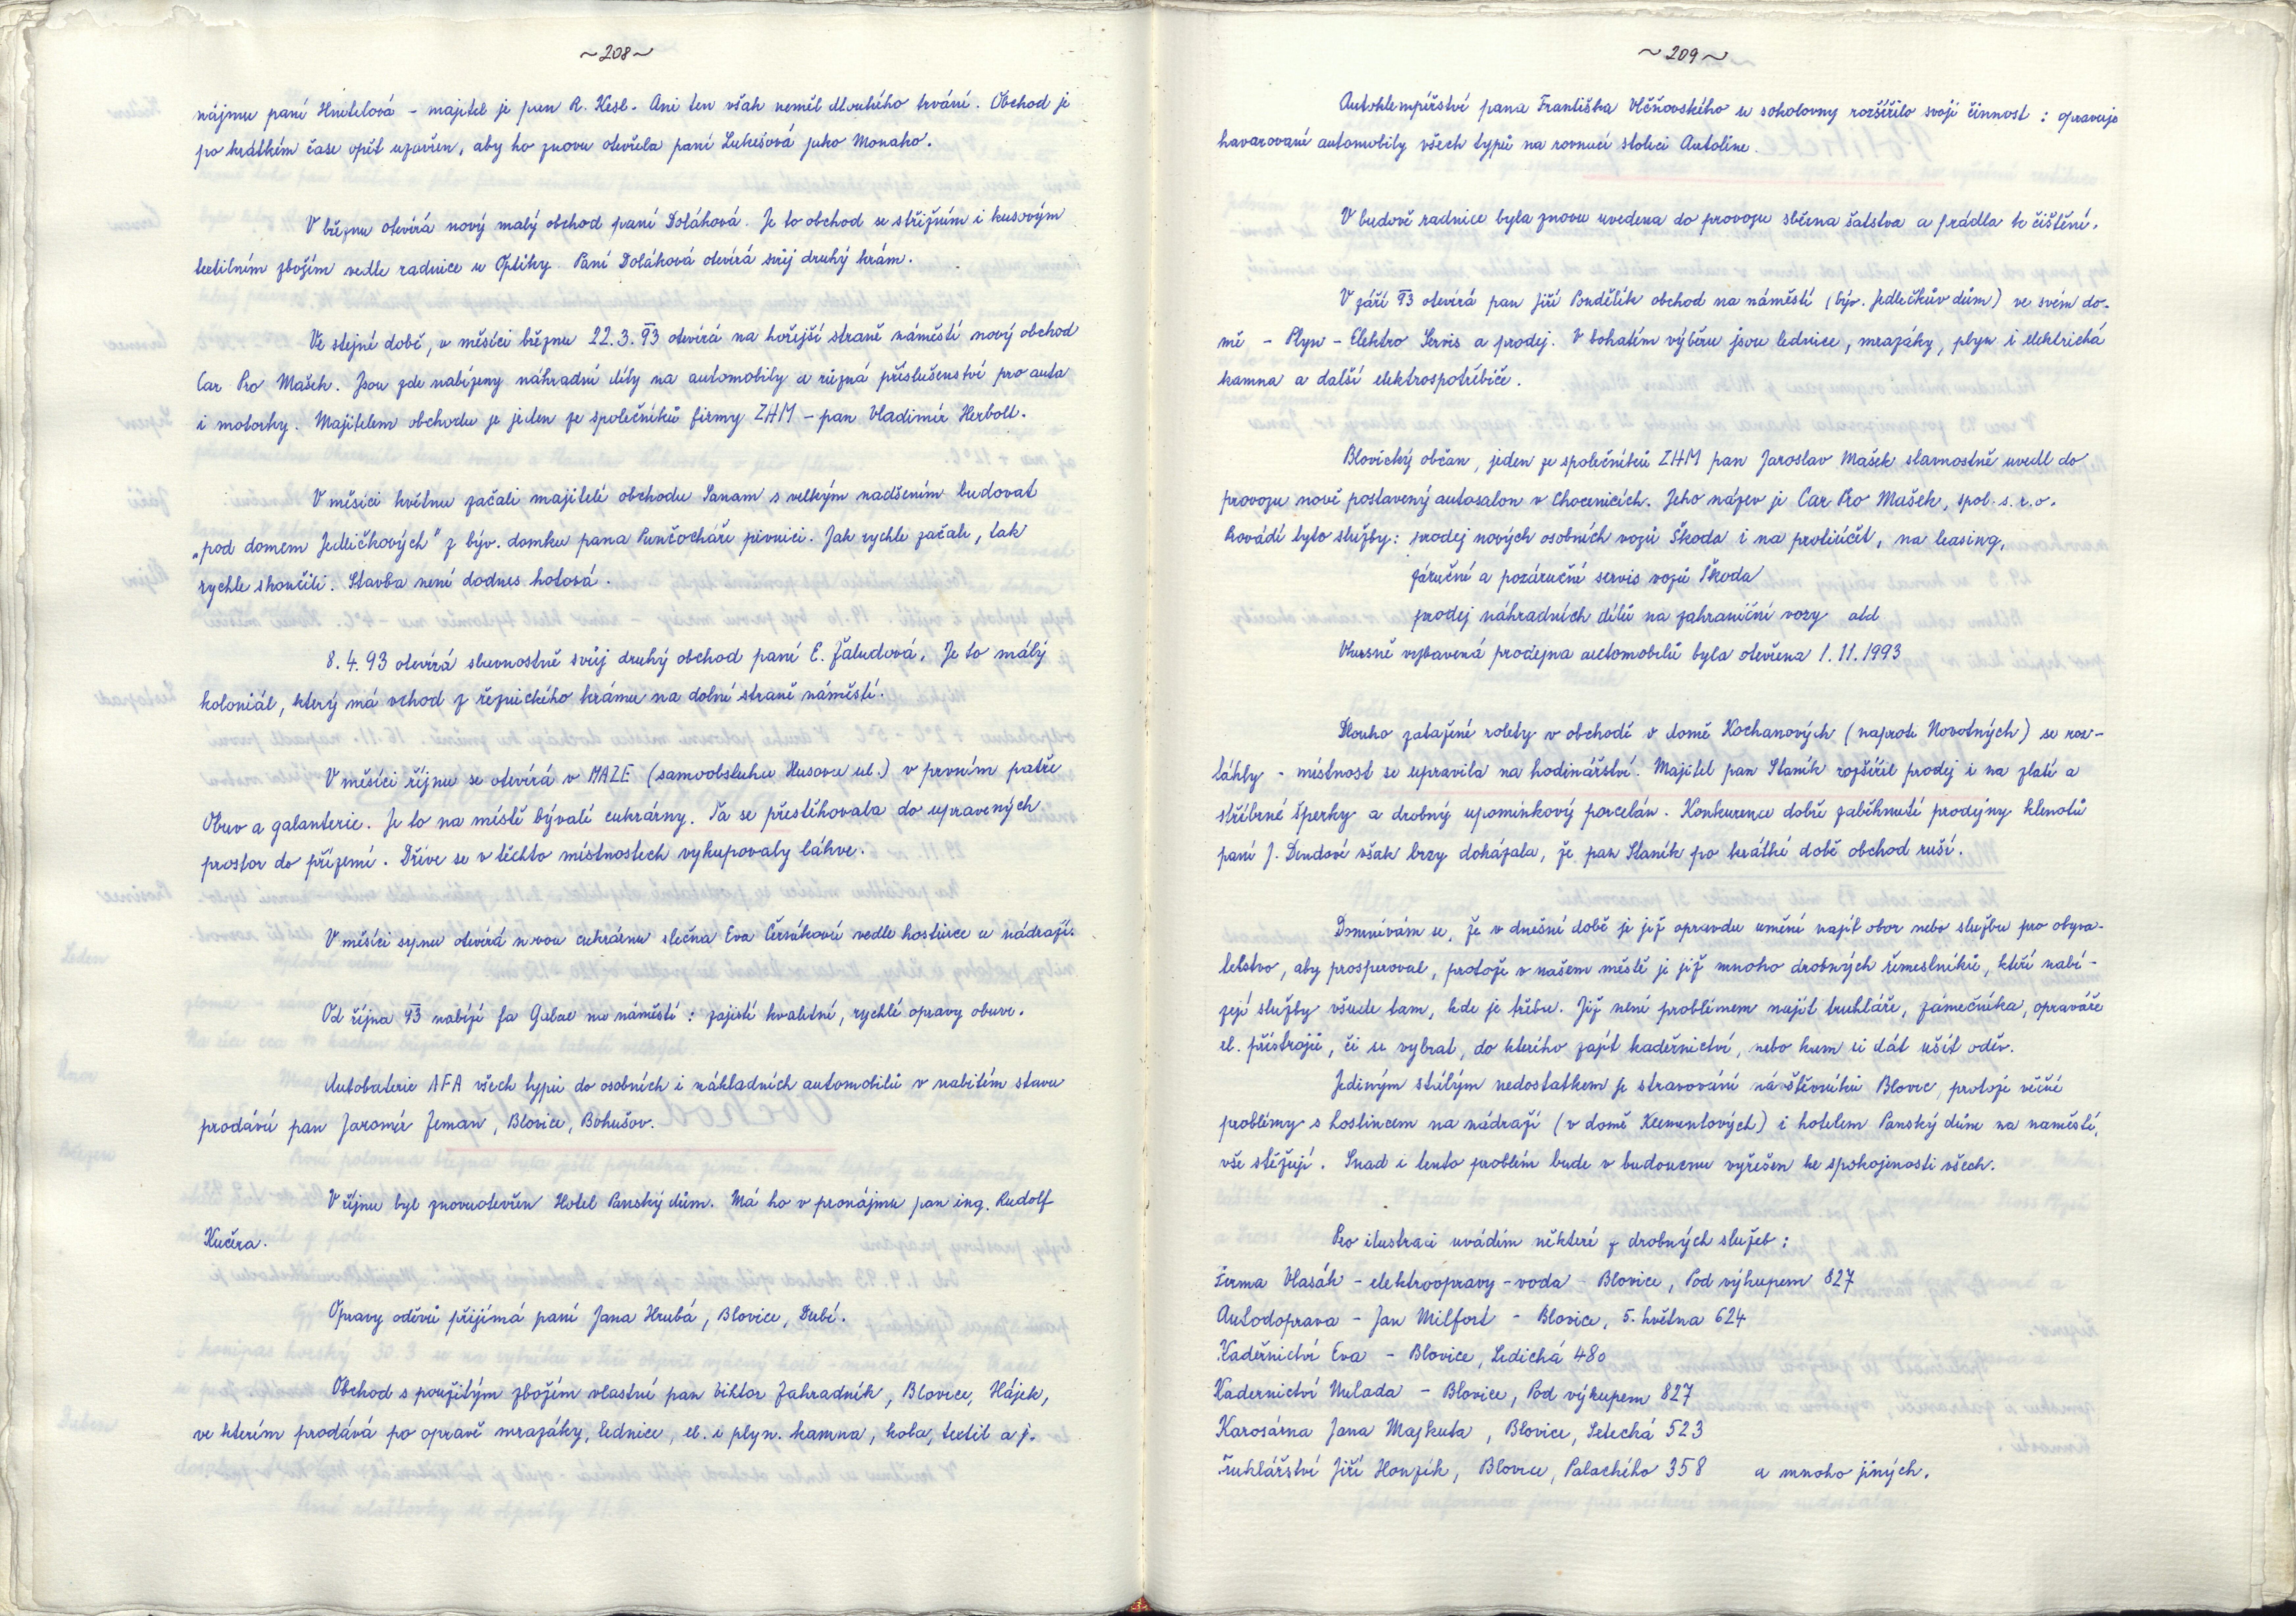 ~208~
nájmu paní Hnetelová - majitel je pan R. Kesl. Ani ten však neměl dlouhého trvání. Obchod je
po krátkém čase opět uzavřen, aby ho znovu otevřela paní Lukešová jako Monako.
V březnu otevírá nový malý obchod paní Doláková. Je to obchod se střižním i kusovým
textilním zbožím vedle radnice u Optiky. Paní Doláková otevírá svůj druhý krám.
Ve stejné době, v měsíci březnu 22.3.93 otevírá na hořejší straně náměstí nový obchod
Car Pro Mašek. Jsou zde nabízeny náhradní díly na automobily a různá příslušenství pro auta
i motorky. Majitelem obchodu je jeden ze společníků firmy ZHM - pan Vladimír Herbolt.
V měsíci květnu začali majitelé obchodu Sanam s velkým nadšením budovat
„pod domem Jedličkových" z býv. domku pana Punčocháře pivnici. Jak rychle začali, tak
rychle skončili. Stavba není dodnes hotová.
8.4.93 otevírá slavnostně svůj druhý obchod paní E. Žaludová. Je to malý
koloniál, který má vchod z řeznického krámu na dolní straně náměstí.
V měsíci říjnu se otevírá v MAZE (samoobsluha Husova ul.) v prvním patře
Obuv a galanterie. Je to na místě bývalé cukrárny. Ta se přestěhovala do upravených
prostor do přízemí. Dříve se v těchto místnostech vykupovaly láhve.
V měsíci srpnu otevírá novou cukrárnu slečna Eva Čersáková vedle hostince u nádraží.
Od října 93 nabízí fa Galac na náměstí : zajistí kvalitní, rychlé opravy obuvi.
Autobaterie AFA všech typů do osobních i nákladních automobilů v nabitém stavu
prodává pan Jaromír Zeman, Blovice, Bohušov.
V říjnu byl znovuotevřen Hotel Panský dům. Má ho v pronájmu pan ing. Rudolf
Kučera.
Opravy oděvů přijímá paní Jana Hrubá, Blovice, Dubí.
Obchod s použitým zbožím vlastní pan Viktor Zahradník, Blovice, Hájek,
ve kterém prodává po opravě mrazáky, lednice, el. i plyn. kamna, kola, textil a j.
~209~
Autoklempířství pana Františka Vlčňovského u sokolovny rozšířilo svoji činnost : opravuje
havarované automobily všech typů na rovnací stolici Autoline.
V budově radnice byla znovu uvedena do provozu sběrna šatstva a prádla k čištění.
V září 93 otevírá pan Jiří Pondělík obchod na náměstí (býv. Jedličkův dům) ve svém do-
mě - Plyn - Elektro Servis a prodej. V bohatém výběru jsou lednice, mrazáky, plyn i elektrická
kamna a další elektrospotřebiče.
Blovický občan, jeden ze společníků ZHM pan Jaroslav Mašek slavnostně uvedl do
provozu nově postavený autosalon v Chocenicích. Jeho název je Car Pro Mašek, spol. s.r.o.
Provádí tyto služby: prodej nových osobních vozů Škoda i na protiúčet, na leasing,
záruční a pozáruční servis vozů Škoda
prodej náhradních dílů na zahraniční vozy atd
Vkusně vybavená prodejna automobilů byla otevřena 1.11.1993
Dlouho zatažené rolety v obchodě v domě Kochanových (naproti Novotných) se roz-
táhly - místnost se upravila na hodinářství. Majitel pan Staník rozšířil prodej i na zlaté a
stříbrné šperky a drobný upomínkový porcelán. Konkurence dobře zaběhnuté prodejny klenotů
paní J. Dendové však brzy dokázala, že pan Staník po krátké době obchod ruší.
Domnívám se, že v dnešní době je již opravdu umění najít obor nebo službu pro obyva-
telstvo, aby prosperoval, protože v našem městě je již mnoho drobných řemeslníků, kteří nabí-
zejí služby všude tam, kde je třeba. Již není problémem najít truhláře, zámečníka, opraváře
el. přístrojů, či si vybrat, do kterého zajít kadeřnictví, nebo kam si dát ušít oděv.
Jediným stálým nedostatkem je stravování návštěvníků Blovic, protože věčné
problémy s hostincem na nádraží (v domě Klementových) i hotelem Panský dům na náměstí,
vše stěžují. Snad i tento problém bude v budoucnu vyřešen ke spokojenosti všech.
Pro ilustraci uvádím některé z drobných služeb :
Firma Vlasák - elektroopravy - voda - Blovice, Pod výkupem 827
Autodoprava - Jan Milfort - Blovice, 5. května 624
Kadeřnictví Eva - Blovice, Sedická 480
Kadernictví Vulada - Blovice, Pod výkupem 827
Karosárna Jana Majkuta, Blovice, Letecká 523
Truhlářství Jiří Honzík, Blovice, Palackého 358 a mnoho jiných.